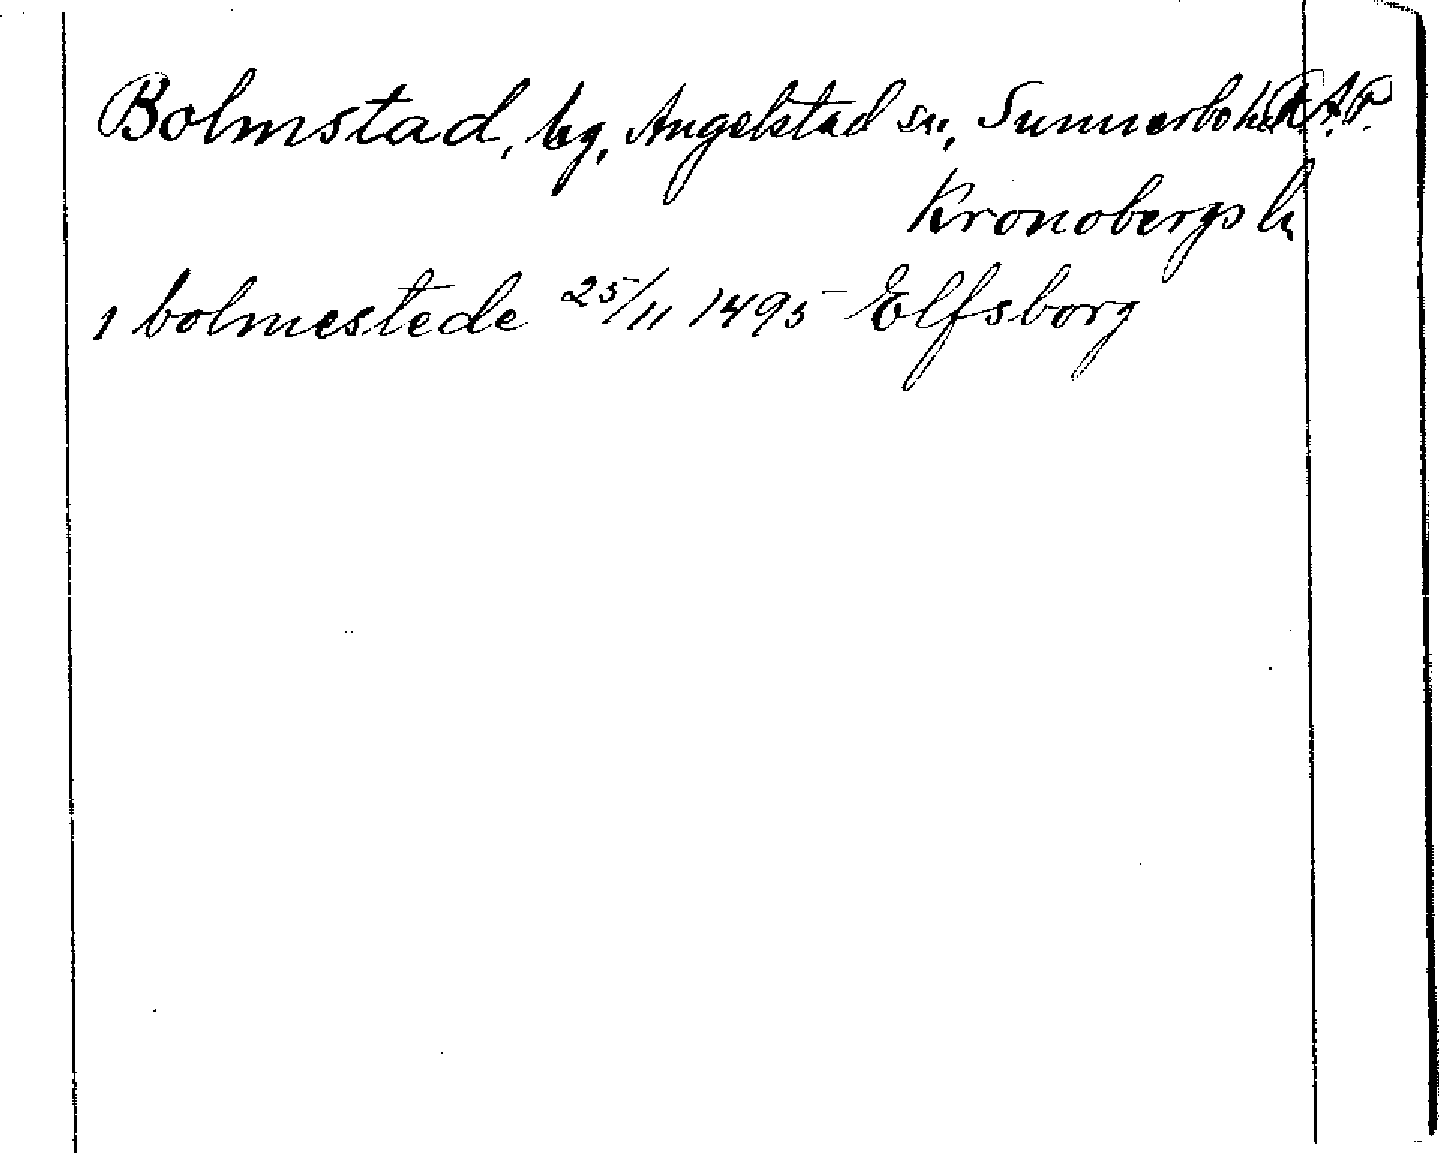 Bolmstad, by, Angelstad sn, Sunnerbo hd R.A.P.
Kronobergs l.
1 bolmestede 25/11 1495 Elfsborg